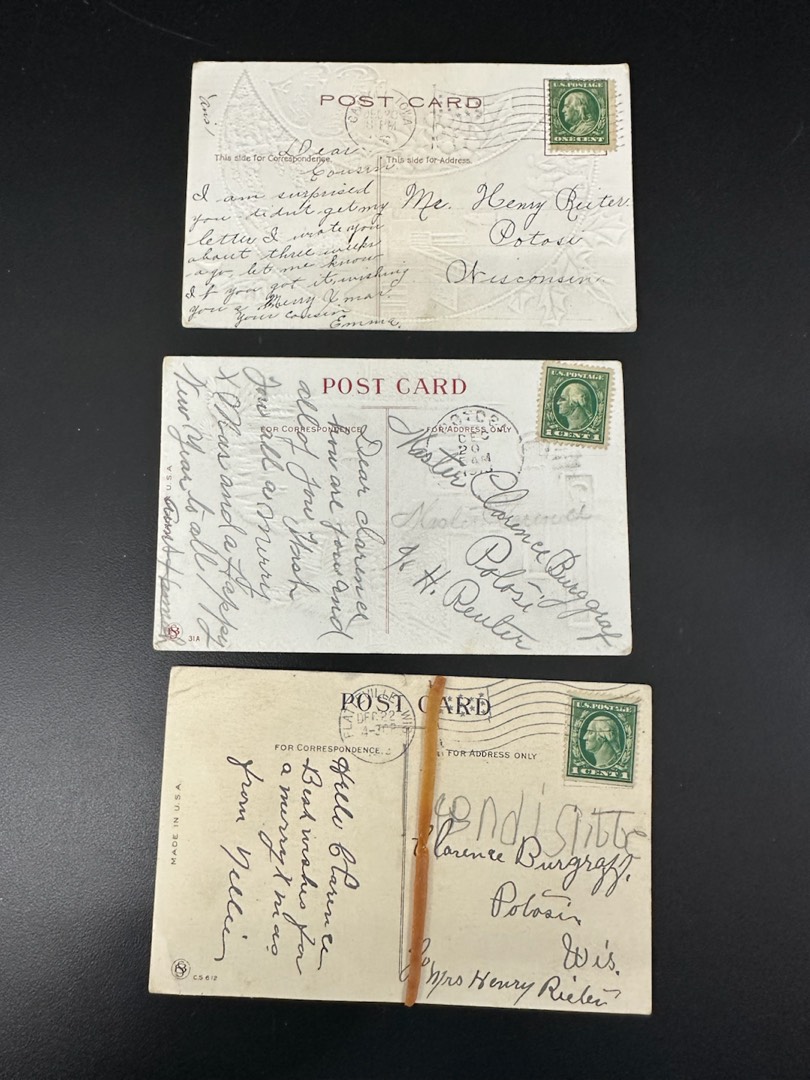 POST CARD
U.S. POSTAGE
ONE CENT
DEC
PM
This side for Correspondence.
This side for Address.
Dear
Cousin
I am surprised
you didn't get my
letter I wrote you
about three weeks
ago, let me know
if you got it, wishing
you a Merry Xmas.
your cousin
Emma.
Mr. Henry Reiter
Potosi
Wisconsin
POST CARD
U.S. POSTAGE
1 CENT 1
FOR CORRESPONDENCE
FOR ADDRESS ONLY
DEC
Dear Clarence
how are you and
all of you Wish
you all a Merry
X Mas and a Happy
New Year to all
Aunt
U.S.A.
31A
Master Clarence Burggraf
Potosi
% H. Reuter
POST CARD
U.S. POSTAGE
1 CENT 1
PLATTEVILLE WIS.
DEC 22
FOR CORRESPONDENCE
FOR ADDRESS ONLY
MADE IN U.S.A.
CS 612
Hello Clarence
Best wishes for
a merry Xmas
from Nellie
Clarence Burgraff.
Potosi
Wis.
c/o Mrs Henry Rieter